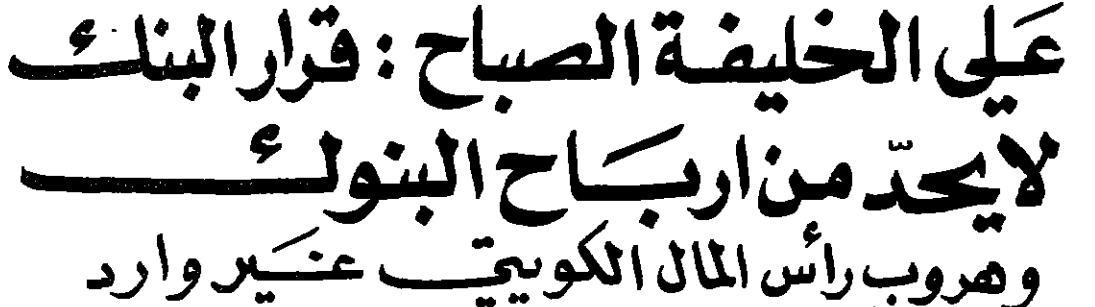 علي الخليفة الصباح : قرار البنك
لا يحدّ من ارباح البنوك
وهروب رأس المال الكويتي غير وارد